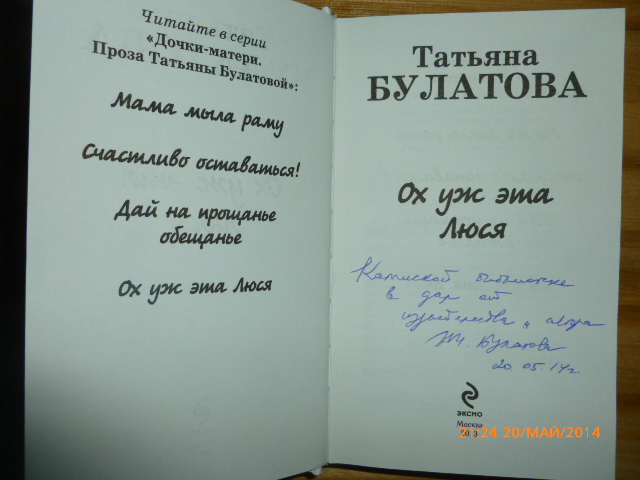 Читайте в серии
«Дочки-матери.
Проза Татьяны Булатовой»:
Мама мыла раму
Счастливо оставаться!
Дай на прощанье
обещанье
Ох уж эта Люся
Татьяна
БУЛАТОВА
Ох уж эта
Люся
библиотеке
в дар от
издательства и автора
Т. Булатова
20.05.14г.
ЭКСМО
Москва
24 20/МАЙ/2014